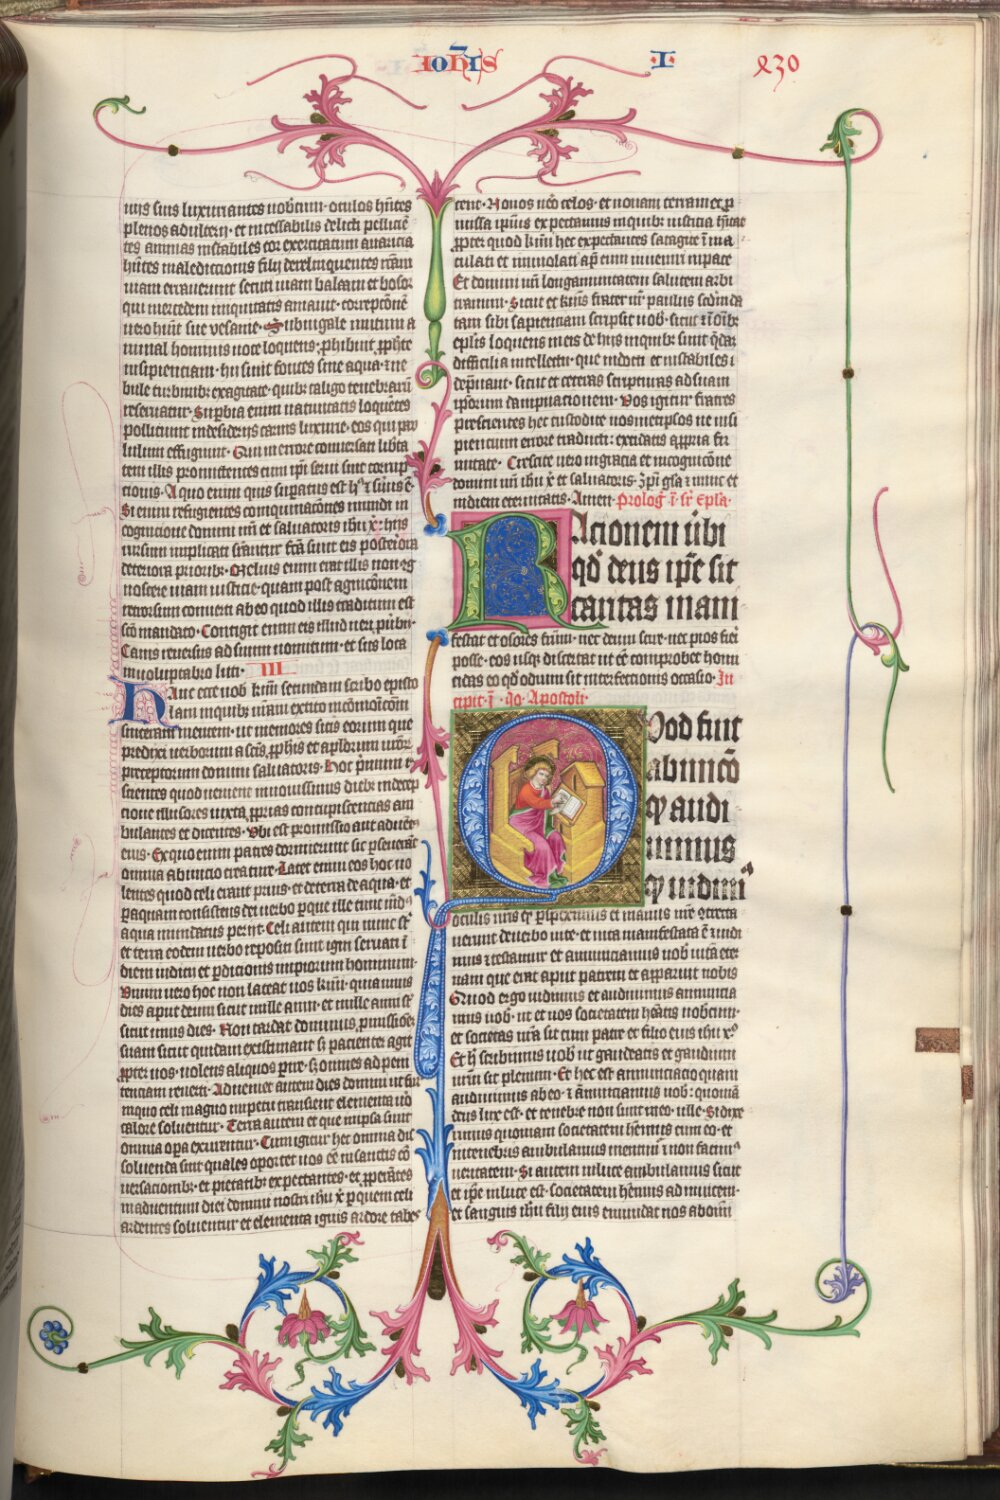 Ioh̄is I 230
plenos adulterij · et incessabilis delicti pellicē
tes animas instabiles cor exercitatum auaricia
hn̄tes maledictionis filij derelinquentes rc̄am
uiam errauerunt secuti uiam balaam ex bosor
qui mercedem iniquitatis amauit · correpcōnē
uero hūit sue vesanie · Subiugale mutum a
nimal hominis uoce loquens · ꝓhibuit ꝓph̄e
insipienciam · hij sunt fontes sine aqua · ⁊ ne
bule turbinibꝫ exagitate · quibꝫ caligo tenebrarū
reseruatur · Supbia enim uanitatis loquētes
pelliciunt in desiderijs carnis luxurie · eos qui pau
lulum effugiunt · Qui in errore conuersant̄ libta
tem illis promittentes cum ip̄i serui sint corrup
cionis · A quo enim quis supatus est hꝰ ⁊ seruus ē ·
Si enim refugientes coinquinacōnes mundi in
cognicione domini nr̄i et saluatoris ih̄u xp̄i · hijs
rursum implicati supantur fc̄a sunt eis posteriora
deteriora prioribꝫ · Melius enim erat illis non cog
noscere uiam iusticie · quam post agnicōnem
retrorsum conuerti ab eo quod illis traditum est
sc̄o mandato · Contigit enim eis illud ueri ꝓuerbij ·
Canis reuersus ad suum uomitum · et sus lota
in uolutabro luti · III
Hanc ecce uob̄ kīmi secundam scribo episto
lam in quibꝫ ur̄am excito in cōmonicōm
sinceram mentem · ut memores sitis eorum que
predixi uerborum a sc̄is ꝓphis et apl̄orum ur̄orum
preceptorum domini saluatoris · Hoc primum
scientes quod uenient in nouissimis diebꝫ in decep
cione illusores iuxta ꝓprias concupiscencias am
bulantes et dicentes · Vbi est promissio aut aduētꝰ
eius · Ex quo enim patres dormierunt sic ꝑseuerāt
omnia ab inicio creature · Latet enim eos hoc uo
lentes quod celi erant prius · et de terra de aqua · et
ꝑ aquam consistens dei uerbo ꝑ que ille tunc mūdꝰ
aqua inundatus perijt · Celi autem qui nunc sūt
et terra eodem uerbo repositi sunt igni seruati ī
diem iudicij et ꝑdicionis impiorum hominum ·
Vnum uero hoc non lateat uos kīmi · quia unus
dies aput deum sicut mille anni · et mille anni sic̄
sicut unus dies · Non tardat dominus ꝓmissōem
suam sicut quidam existimant · s; pacienter agit
ꝓpter uos · nolens aliquos ꝑire · s; omnes ad peni
tenciam reuerti · Adueniet autem dies domini ut fur
in quo celi magno impetu transient elementa uō
calore soluentur · Terra autem et que in ipsa sunt
omnia opa exurentur · Cum igitur hec omnia dis
soluenda sint quales oportet uos eē in sanctis cō
uersacionibꝫ · et pietatibꝫ expectantes · et ꝓperātes
in aduentum diei domini nostri ih̄u xp̄ ꝑ quem celi
ardentes soluentur et elementa ignis ardore tabes
cent · Nouos uō celos · et nouam terram et ꝓ
missa ip̄ius expectamus in quibꝫ iusticia hitat
ꝓpter quod kīmi hec expectantes satagite īma
culati et inuiolati ap̄ eum inueniri in pace
Et domini nr̄i longanimitatem salutem arbi
tramini · Sicut et kr̄mus frater nr̄ paulus scdm da
tam sibi sapienciam scripsit uob̄ · sicut ⁊ ī oībꝫ
epl̄is loquens in eis de hijs in quibꝫ sunt quedā
difficilia intellectu · que indocti et instabiles
depuant · sicut et ceteras scripturas ad suam
ip̄orum dampnacionem · Vos igitur fratres
prescientes hec custodite uosmetipsos ne insi
piencium errore traducti · excidatis a ꝓpria fir
mitate · Crescite uero in gracia et in cognicōne
domini nr̄i ih̄u xp̄ et saluatoris · Ip̄i gl̄a ⁊ nunc et
in diem eternitatis · Amen · Proloḡ ī · s̄r Epl̄a ·
Racionem ūbi
qd̄ deus ip̄e sit
caritas mani
festat et osores frūm · nec deum scire · nec pios fieri
posse · eos usqꝫ discertat ut eē comprobet homi
cidas eo qd̄ odium sit interfectionis occasio · In
cipit · ī · Io · Apostoli ·
Quod fuit
ab inicō
qꝫ audi
uimus
qꝫ uidimꝰ
oculis nr̄is qꝫ ꝑspeximus et manus nr̄e ↄtrecta
uerunt de uerbo uite · et uita manifestata ē ⁊ uidi
mus ⁊ testamur et annunciamus uob̄ uitā eter
nam que erat aput patrem et apparuit nobis
Quod ergo uidimus et audiuimus annuncia
mus uob̄ · ut et uos societatem hēatis nobiscum ·
et societas nr̄a sit cum patre et filio eius ih̄u xp̄o
Et h̄ scribimus uob̄ ut gaudeatis et gaudium
ur̄m sit plenum · Et hec est annunciacio quam
audiuimus ab eo · ⁊ annunciamus uob̄ · quoniā
deus lux est · et tenebre non sunt in eo · ulle · Si dixe
rimus quoniam societatem hēmus cum eo · et
in tenebris ambulamus mentimur ⁊ non facimꝰ
ueritatem · Si autem in luce ambulamus sicut
et ip̄e in luce est · societatem hēmus ad inuicem ·
et sanguis ih̄u filij eius emundat nos ab omi